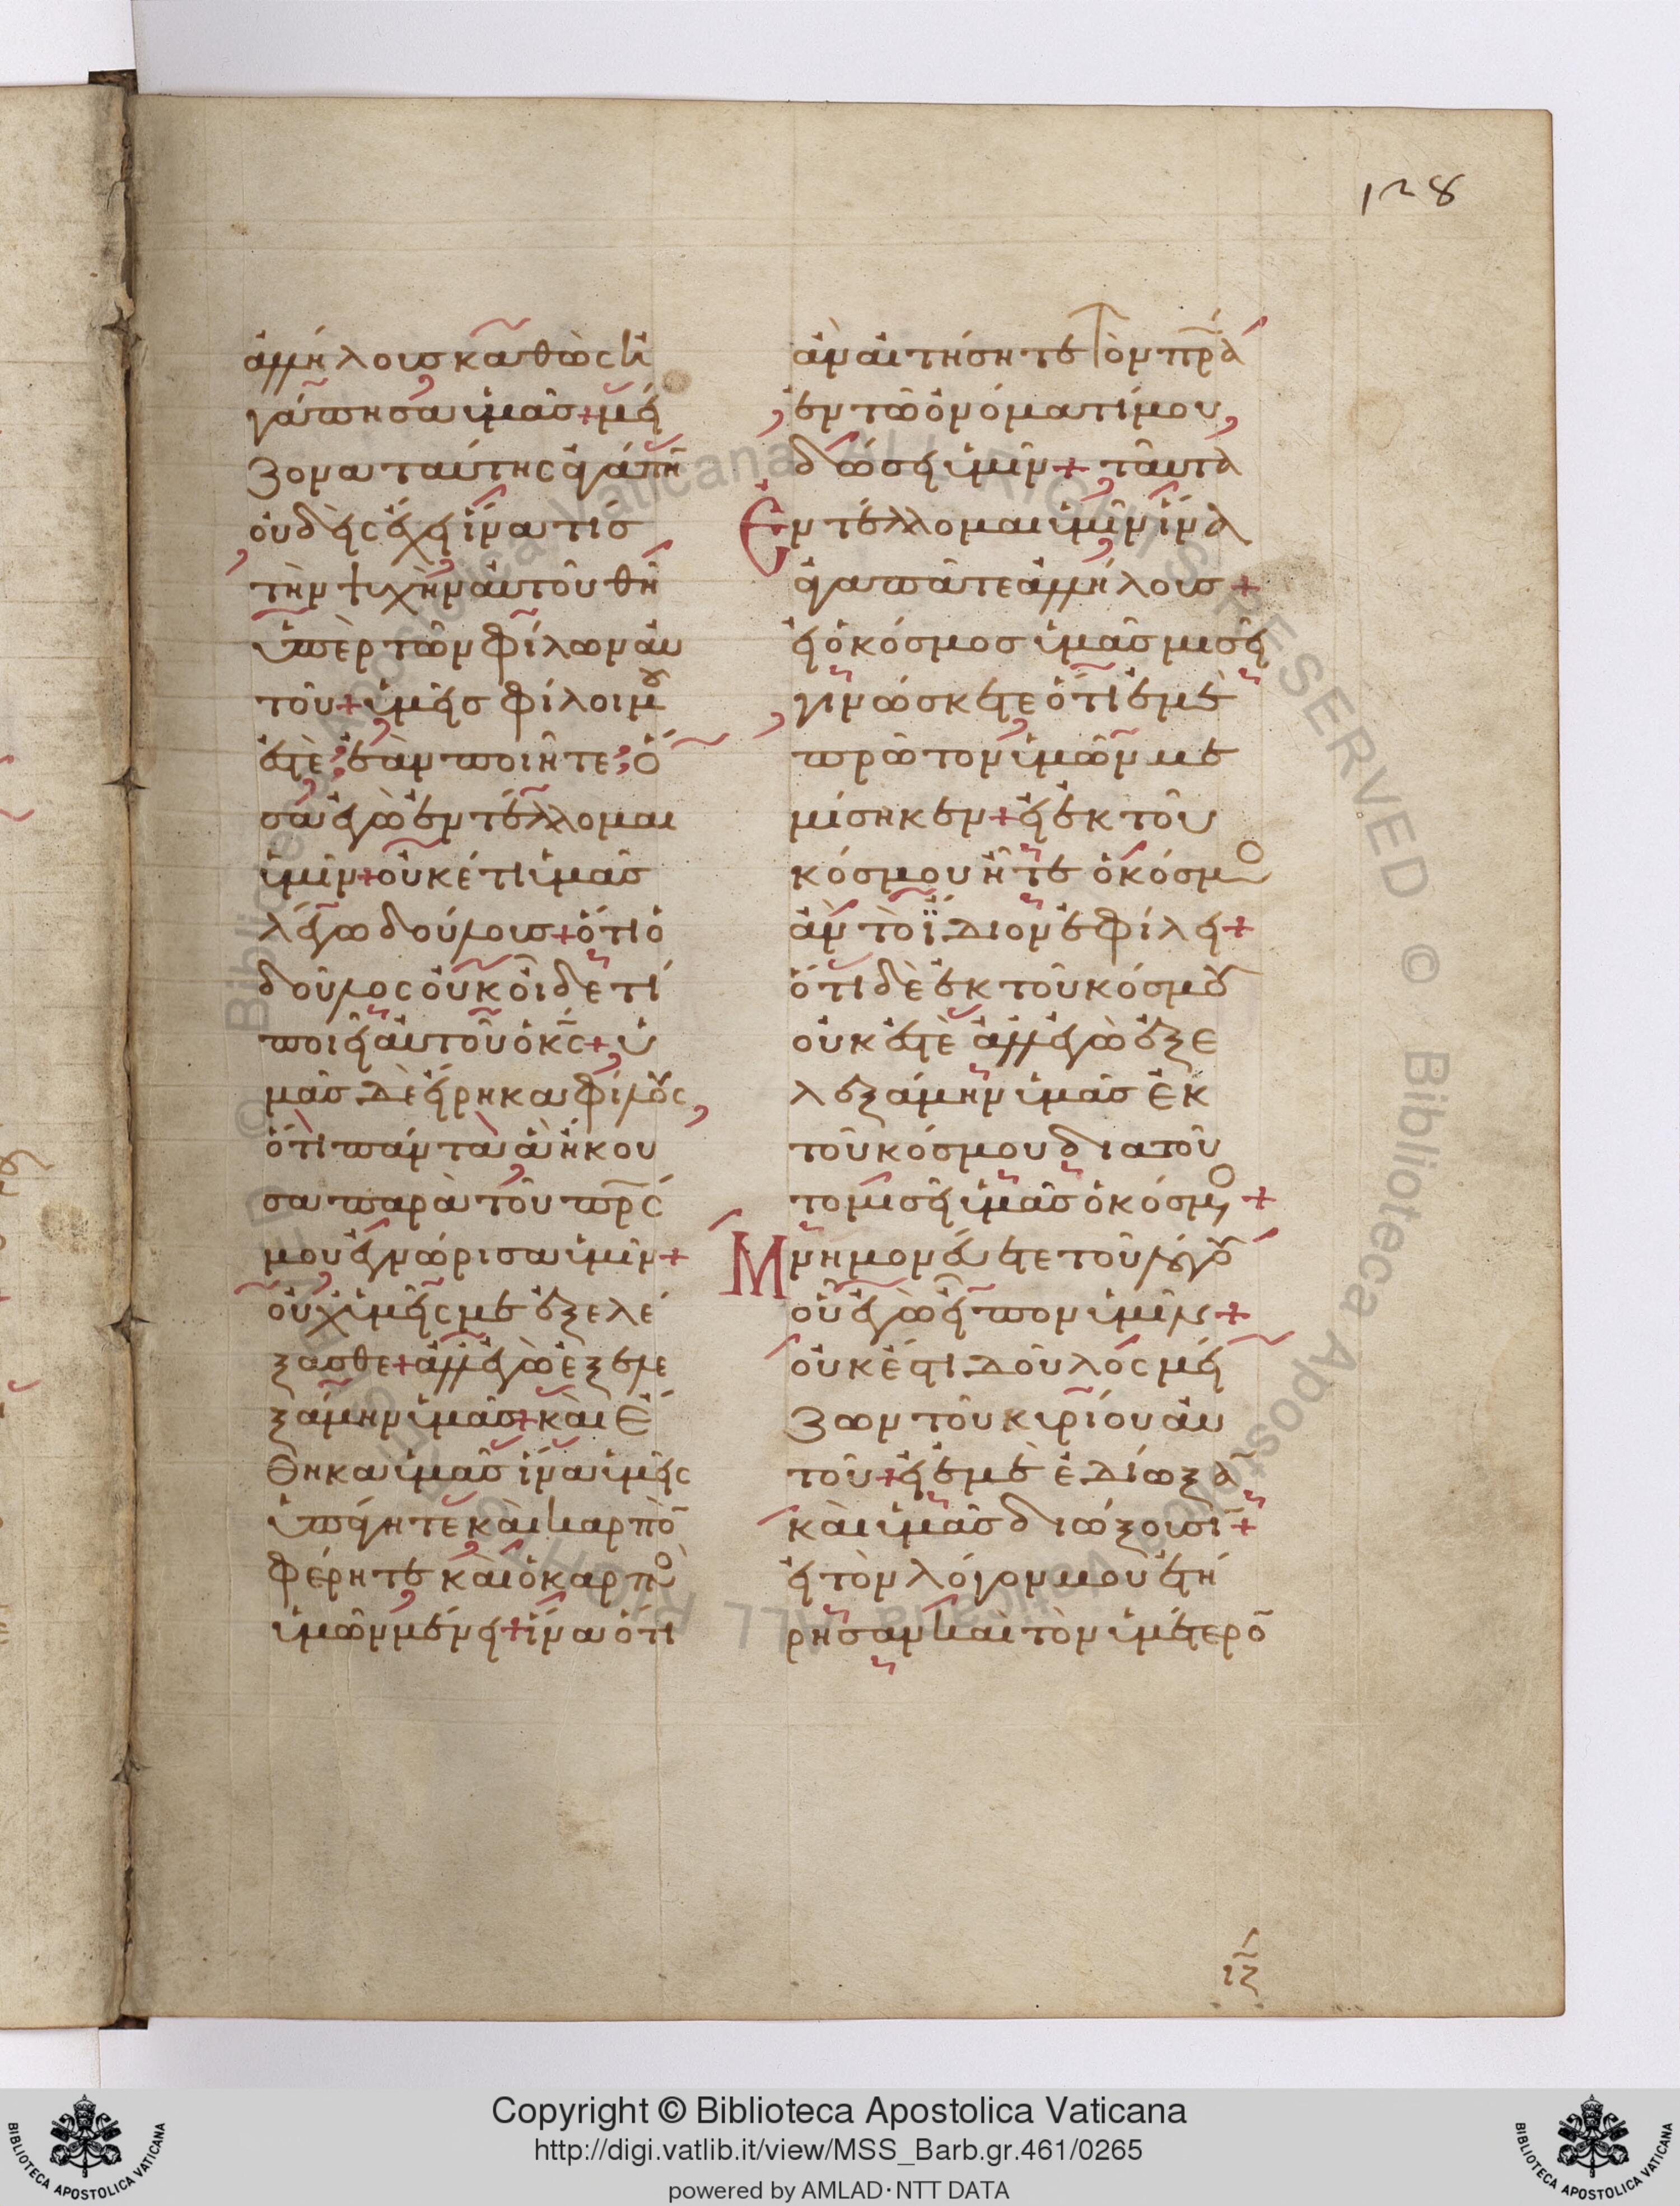 128
ἀλλήλουσ καθὼς ἠ
γάπησα ὑμᾶσ + μεί
ζονα ταύτης ἀγάπην̄
οὐδεὶς ἔχει ἵνα τίσ
τὴν ψυχὴν αὐτοῦ θῆ
ὑπὲρ τῶν φίλων αὐ
τοῦ + ὑμεῖσ φίλοι μου
ἐστὲ, ἐὰν ποιῆτε, ὅ
σα ἐγὼ ἐντέλλομαι
ὑμῖν + οὐκέτι ὑμᾶσ
λέγω δούλουσ + ὅτι ὁ
δοῦλος οὐκ οἶδε τί
ποιεῖ αὐτοῦ ὁ κ̄ς̄ + ὑ
μᾶσ δὲ εἴρηκα φίλους,
ὅτι πάντα ἃ ἤκου
σα παρὰ τοῦ πρ̄ς
μου ἐγνώρισα ὑμῖν +
οὐχ ὑμεῖς με ἐξελέ
ξασθε + ἀλλ' ἐγὼ ἐξελε
ξάμην ὑμᾶσ + καὶ ἔ
θηκα ὑμᾶσ ἵνα ὑμεῖς
ὑπάγητε καὶ καρπὸ̄
φέρητε καὶ ὁ καρπὸς
ὑμῶν μένει + ἵνα ὅτι
ἂν αἰτήσητε τὸν πρ̄α
ἐν τῶ ὀνόματί μου,
δώσει ὑμῖν + ταῦτα
Ἐντέλλομαι ὑμῖν ἵνα
ἀγαπᾶτε ἀλλήλουσ +
εἰ ὁ κόσμοσ ὑμᾶσ μισεῖ
γινώσκετε ὅτι ἐμὲ
πρῶτον ὑμῶν με
μίσηκεν + εἰ ἐκ τοῦ
κόσμου ἦτε ὁ κόσμος
ἂν τὸ ἴδιον ἐφίλει +
ὅτι δὲ ἐκ τοῦ κόσμου
οὐκ ἐστὲ ἀλλ' ἐγὼ ἐξε
λεξάμην ὑμᾶσ ἐκ
τοῦ κόσμου δια τοῦ
το μισεῖ ὑμᾶσ ὁ κόσμος +
Μνημονεύετε τοῦ λόγου
οὗ ἐγὼ εἶπον ὑμῖν +
οὐκ ἔστι δοῦλος μεί
ζων τοῦ κυρίου αὐ
τοῦ + εἰ ἐμὲ ἐδίωξᾱ
καὶ ὑμᾶσ διώξουσῑ +
εἰ τὸν λόγον μου ἐτή
ρησαν καὶ τὸν ὑμέτερο̄
ιζ
Copyright © Biblioteca Apostolica Vaticana
http://digi.vatlib.it/view/MSS_Barb.gr.461/0265
powered by AMLAD·NTT DATA
BIBLIOTECA APOSTOLICA VATICANA
BIBLIOTECA APOSTOLICA VATICANA
© Biblioteca Apostolica Vaticana ALL RIGHTS RESERVED © Biblioteca Apostolica Vaticana ALL RIGHTS RESERVED